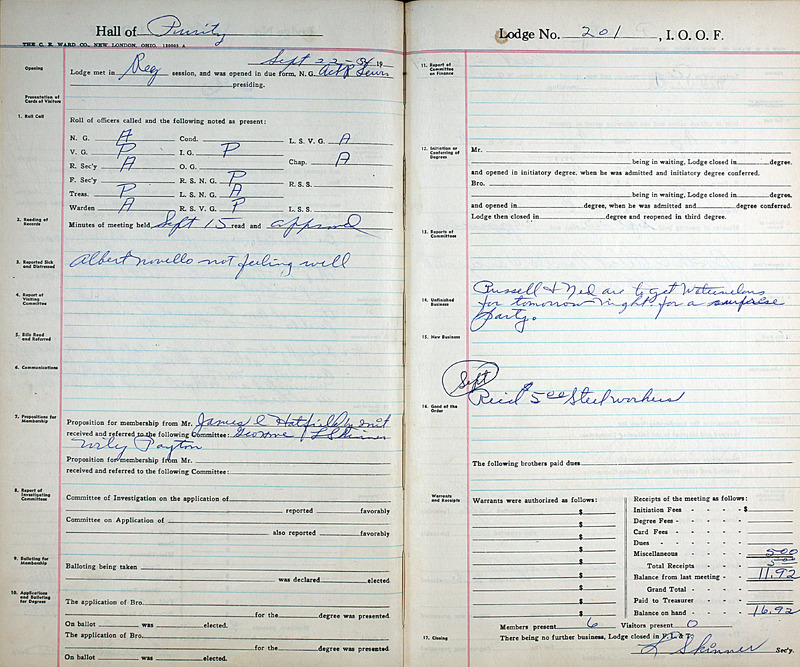 Hall of Purity
THE C. E. WARD CO., NEW LONDON, OHIO.
Sept 22-54 19
Opening
Lodge met in Reg session, and was opened in due form, N. G. Act R Lewis
presiding.
Presentation of Cards of Visitors
1. Roll Call
Roll of officers called and the following noted as present:
N. G. A Cond. L. S. V. G. A
V. G. P I. G. P Chap. A
R. Sec'y A O. G.
F. Sec'y R. S. N. G. P R. S. S.
Treas. P L. S. N. G. A
Warden A R. S. V. G. P L. S. S.
2. Reading of Records
Minutes of meeting held Sept 15 read and approved
3. Reported Sick and Distressed
Albert Novello not feeling well
4. Report of Visiting Committee
5. Bills Read and Referred
6. Communications
7. Propositions for Membership
Proposition for membership from Mr. James C Hatfield by init
received and referred to the following Committee: George L Skinner
Wily Payton
Proposition for membership from Mr.
received and referred to the following Committee:
8. Report of Investigating Committees
Committee of Investigation on the application of
reported favorably
Committee on Application of
also reported favorably
9. Balloting for Membership
Balloting being taken
was declared elected
10. Applications and Balloting for Degrees
The application of Bro.
for the degree was presented.
On ballot was elected.
The application of Bro.
for the degree was presented.
On ballot was elected.
Lodge No. 201, I. O. O. F.
11. Report of Committee on Finance
12. Initiation or Conferring of Degrees
Mr.
being in waiting, Lodge closed in degree,
and opened in initiatory degree, when he was admitted and initiatory degree conferred.
Bro.
being in waiting, Lodge closed in degree,
and opened in degree, when he was admitted and degree conferred.
Lodge then closed in degree and reopened in third degree.
13. Reports of Committees
14. Unfinished Business
Russell & Ned are to get Watermelons
for tomorrow night for a surprise
party.
15. New Business
Sept
16. Good of the Order
Reid $5.00 Steel workers
The following brothers paid dues
Warrants and Receipts
Warrants were authorized as follows:
$
$
$
$
$
$
$
$
$
Receipts of the meeting as follows:
Initiation Fees $
Degree Fees
Card Fees
Dues
Miscellaneous 5.00
Total Receipts 5.00
Balance from last meeting 11.92
Grand Total
Paid to Treasurer
Balance on hand 16.92
Members present 6 Visitors present 0
17. Closing
There being no further business, Lodge closed in F. L. & T.
L Skinner Sec'y.